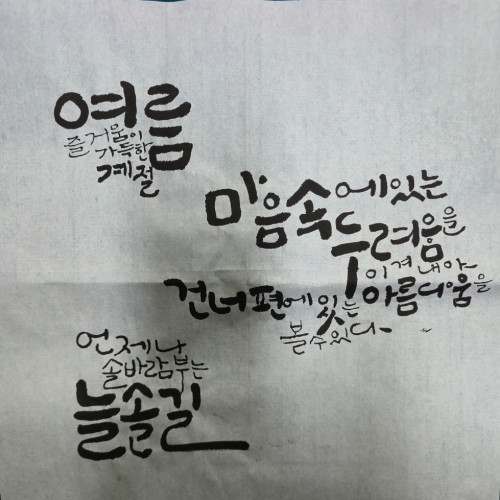 여름
즐거움이
가득한
계절
마음속에있는
두려움을
이겨내야
건너편에있는 아름다움을
볼수있다
언제나
솔바람부는
늘솔길